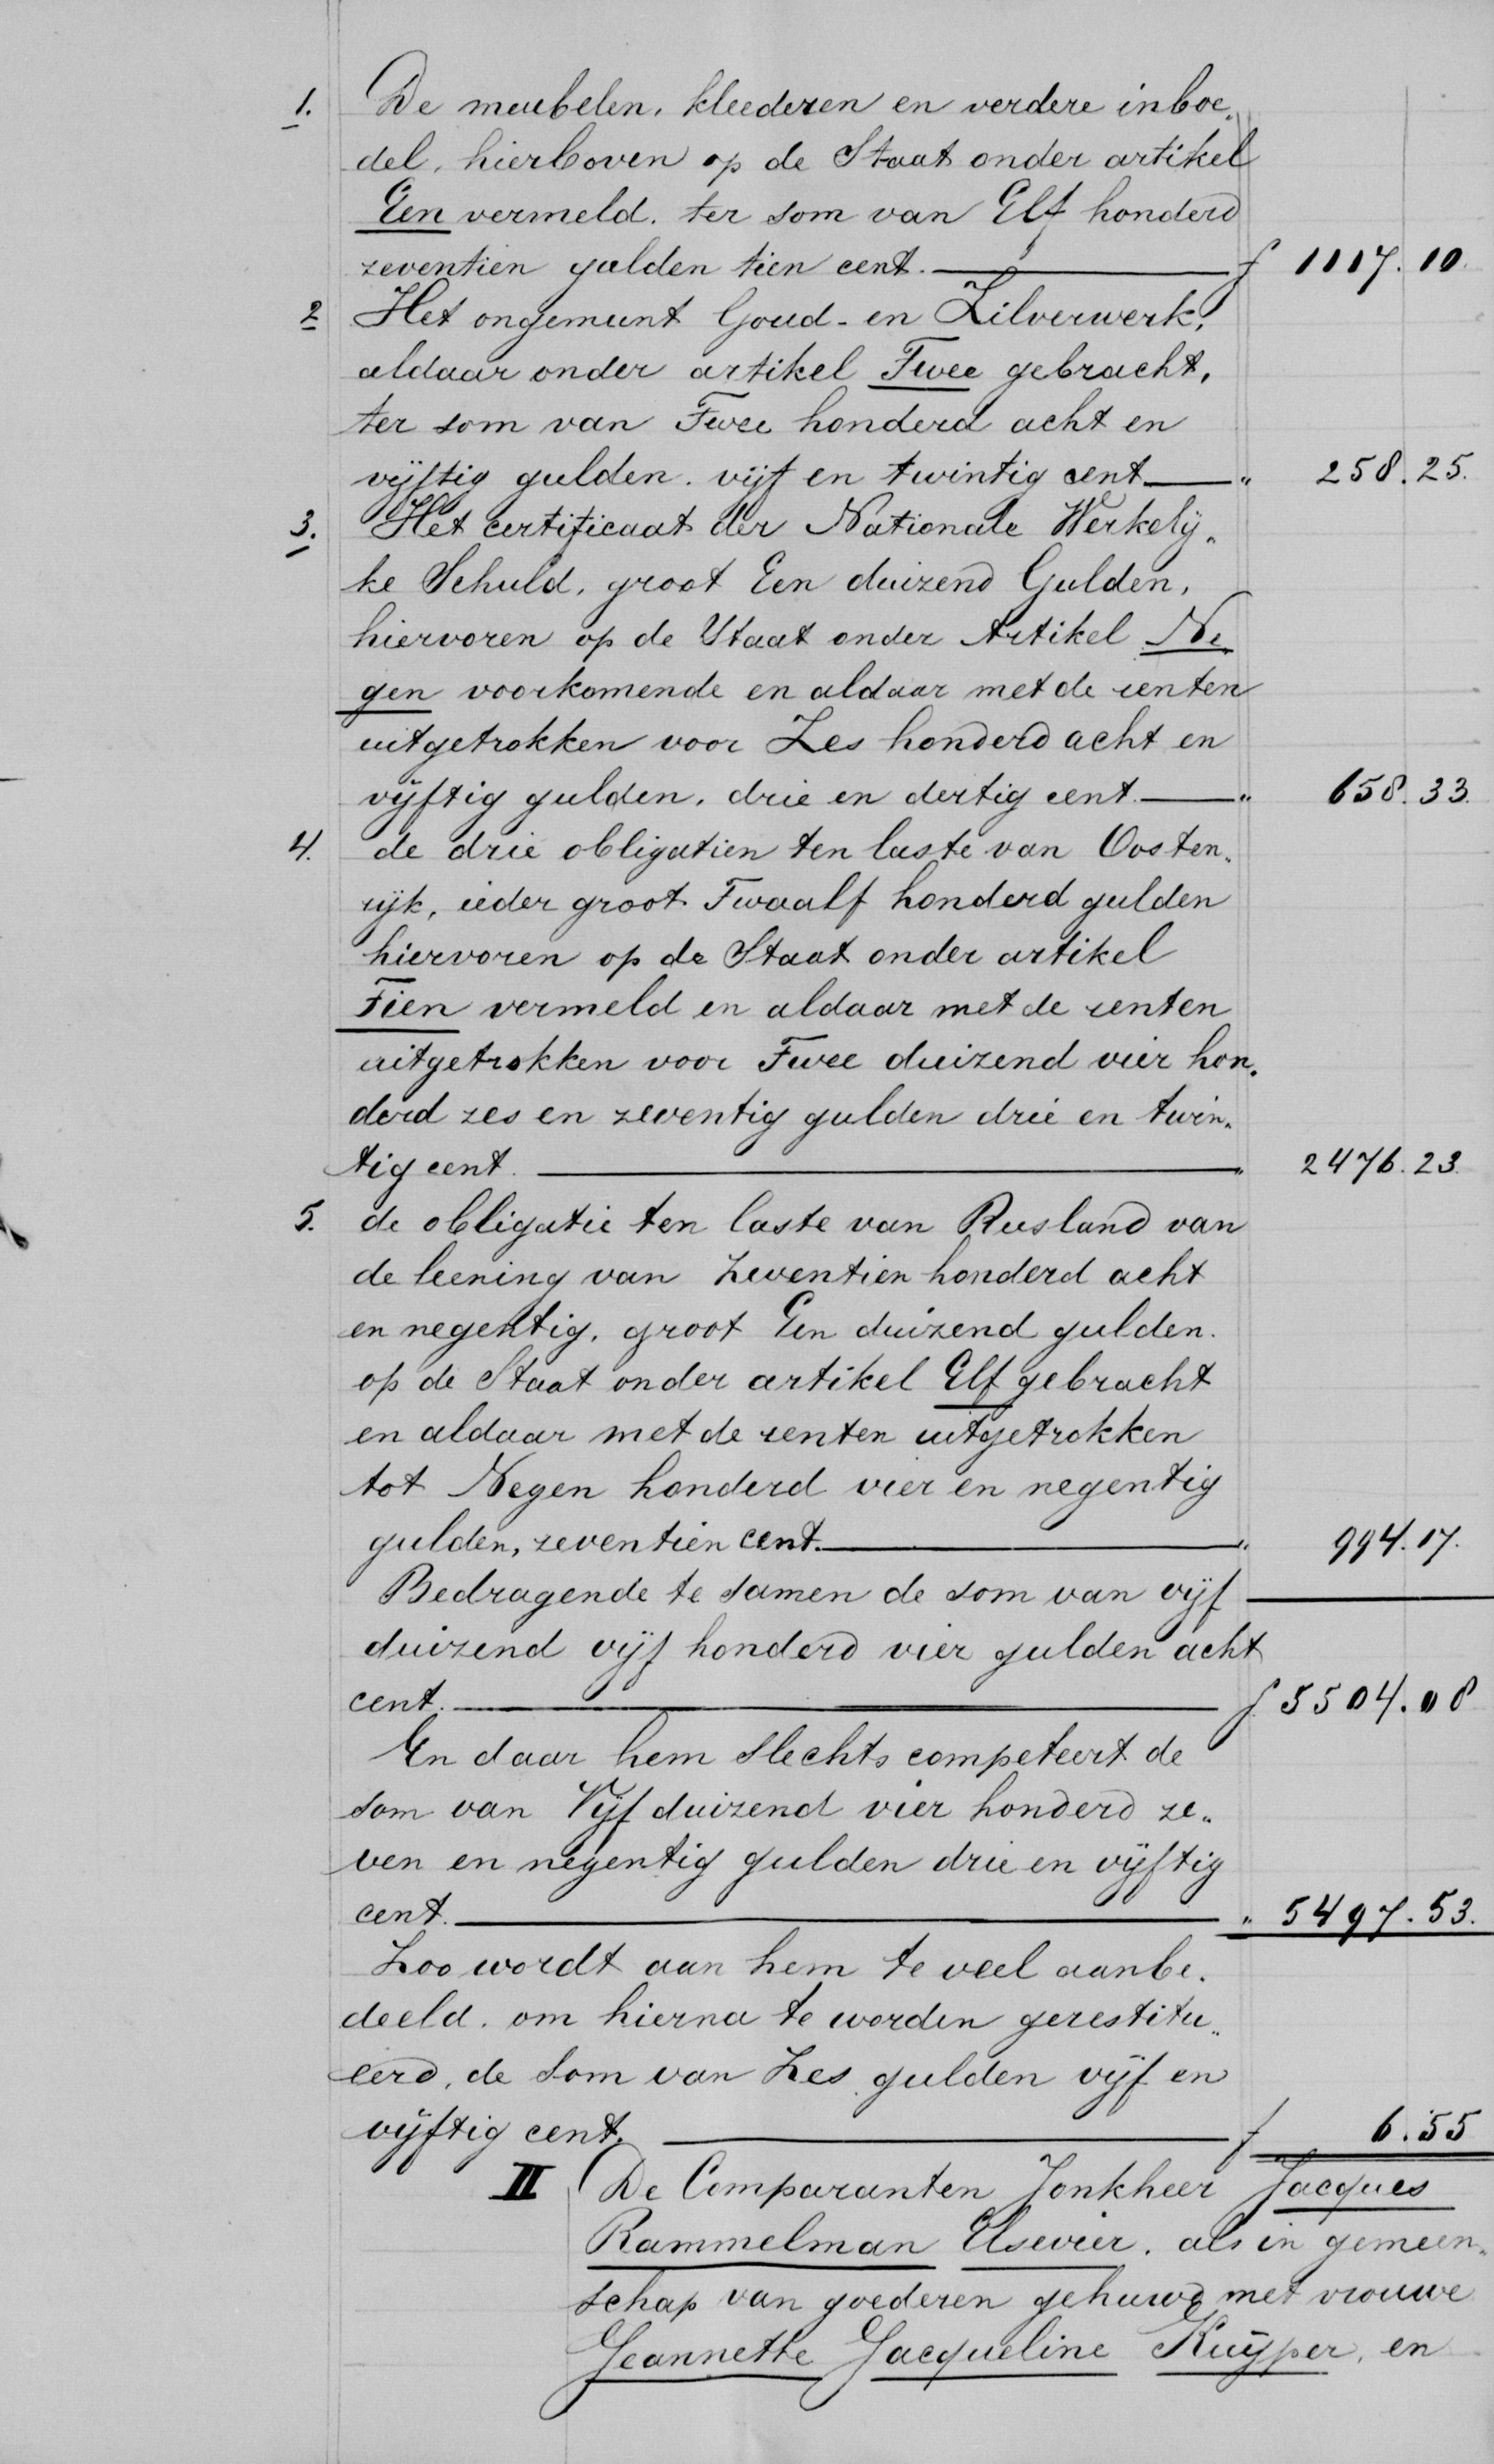 1. De meubelen, kleederen en verdere inboe„
del, hierboven op de Staat onder artikel
Een vermeld. ter som van Elf honderd
zeventien gulden tien cent. — f 1117.10.
2 Het ongemunt Goud- en Zilverwerk,
aldaar onder artikel Twee gebracht,
ter som van Twee honderd acht en
vijftig gulden. vijf en twintig cent — „ 258.25.
3. Het certificaat der Nationale Werkelij„
ke Schuld, groot Een duizend Gulden,
hiervoren op de Staat onder Artikel Ne„
gen voorkomende en aldaar met de renten
uitgetrokken voor Zes honderd acht en
vijftig gulden, drie en dertig cent. — „ 658.33.
4. de drie obligatien ten laste van Oosten„
rijk, ieder groot Twaalf honderd gulden
hiervoren op de Staat onder artikel
Tien vermeld en aldaar met de renten
uitgetrokken voor Twee duizend vier hon„
derd zes en zeventig gulden drie en twin„
tig cent. — „ 2476.23.
5. de obligatie ten laste van Rusland van
de leening van Zeventien honderd acht
en negentig, groot Een duizend gulden.
op de Staat onder artikel Elf gebracht
en aldaar met de renten uitgetrokken
tot Negen honderd vier en negentig
gulden, zeventien cent. — „ 994.17.
Bedragende te samen de som van vijf
duizend vijf honderd vier gulden acht
cent. — f 5504.08
En daar hem slechts competeert de
som van Vijf duizend vier honderd ze„
ven en negentig gulden drie en vijftig
cent. — „ 5497.53.
Zoo wordt aan hem te veel aanbe„
deeld. om hierna te worden gerestitu„
eerd, de som van Zes gulden vijf en
vijftig cent. — f 6.55
II De Comparanten Jonkheer Jacques
Rammelman Elsevier. als in gemeen„
schap van goederen gehuwd met vrouwe
Jeannette Jacqueline Kuÿper, en